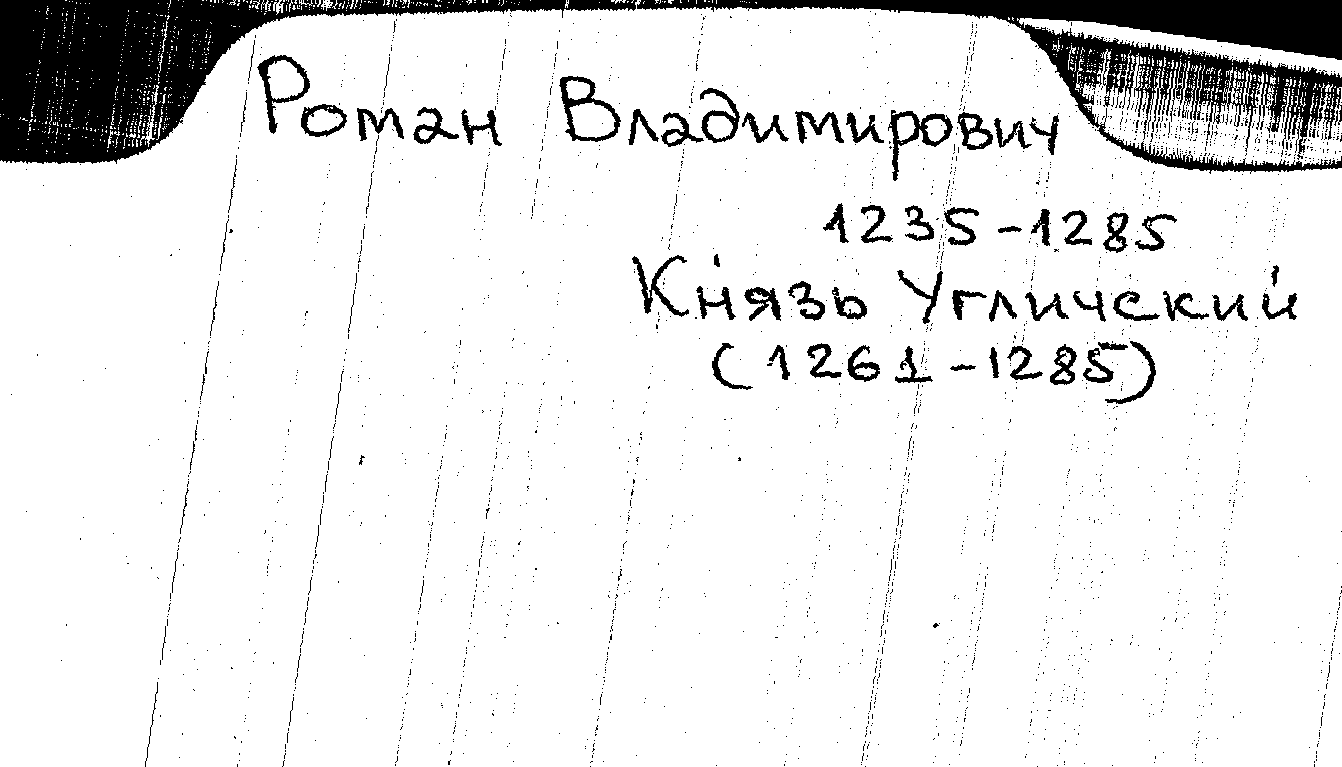 Роман Владимирович
1235-1285
Князь Угличский
(1261-1285)